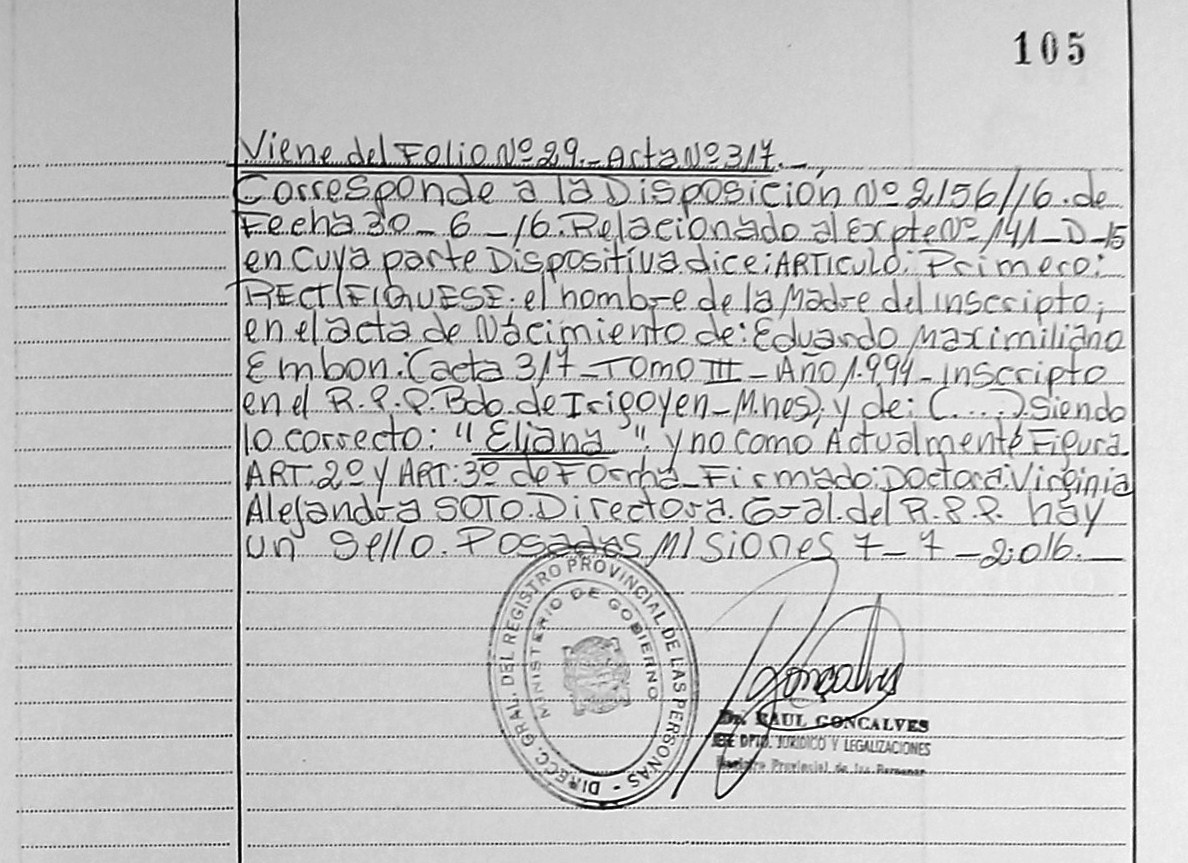 105
Viene del Folio Nº 29.- Acta Nº 317.-
Corresponde a la Disposición Nº 2156/16. de
Fecha 30_6_16. Relacionado al expte Nº 141_D_15
en cuya parte Dispositiva dice: ARTICULO: Primero:
RECTIFIQUESE. el nombre de la Madre del inscripto;
en el acta de Nacimiento de: Eduardo Maximiliano
Embon: (acta 317_Tomo III_Año 1.994_inscripto
en el R.P.P. Bdo. de Irigoyen_Mnes); y de: (....) siendo
lo correcto: "Eliana". y no como Actualmente Figura.
ART: 2º y ART: 3º de Forma_Firmado: Doctora: Virginia
Alejandra SOTO. Directora. Gral. del R.P.P. hay
un Sello. Posadas Misiones 7_7_2.016._
DIRECC. GRAL. DEL REGISTRO PROVINCIAL DE LAS PERSONAS -
MINISTERIO DE GOBIERNO
Gonçalves
Dr. RAUL GONCALVES
JEFE DPTO. JURIDICO Y LEGALIZACIONES
Registro Provincial de las Personas